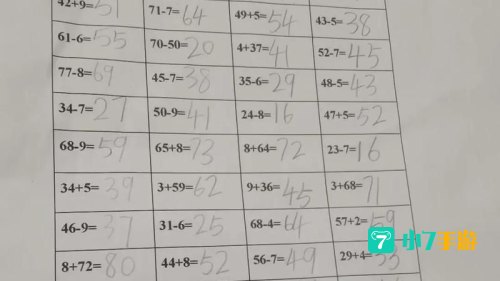 42+9=51 71-7=64 49+5=54 43-5=38
61-6=55 70-50=20 4+37=41 52-7=45
77-8=69 45-7=38 35-6=29 48-5=43
34-7=27 50-9=41 24-8=16 47+5=52
68-9=59 65+8=73 8+64=72 23-7=16
34+5=39 3+59=62 9+36=45 3+68=71
46-9=37 31-6=25 68-4=64 57+2=59
8+72=80 44+8=52 56-7=49 29+4=33
7 小7手游